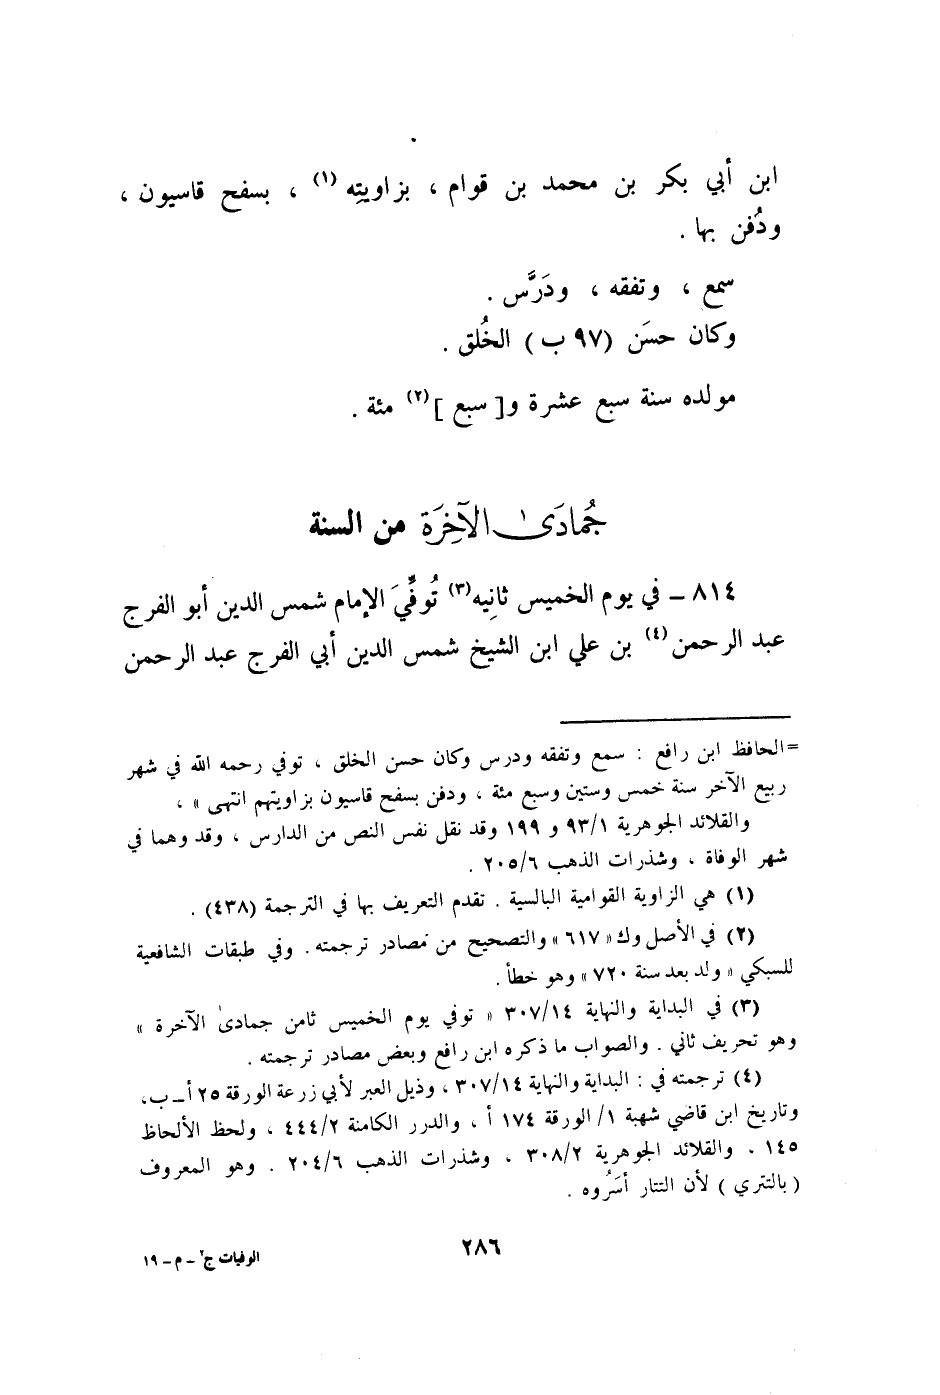 ابن أبي بكر بن محمد بن قوام ، بزاويتِه (١) ، بسفح قاسيون ،
ودُفن بها .
سمع ، وتفقه ، ودَرَّس .
وكان حسَن (٩٧ ب) الخُلق .
مولده سنة سبع عشرة و[ سبع ](٢) مئة .
جُمادَىٰ الآخِرَة من السنة
٨١٤ – في يوم الخميس ثانِيه(٣) تُوفِّيَ الإمام شمس الدين أبو الفرج
عبد الرحمن(٤) بن علي ابن الشيخ شمس الدين أبي الفرج عبد الرحمن
=الحافظ ابن رافع : سمع وتفقه ودرس وكان حسن الخلق ، توفي رحمه الله في شهر
ربيع الآخر سنة خمس وستين وسبع مئة ، ودفن بسفح قاسيون بزاويتهم انتهى » ،
والقلائد الجوهرية ٩٣/١ و ١٩٩ وقد نقل نفس النص من الدارس ، وقد وهما في
شهر الوفاة ، وشذرات الذهب ٢٠٥/٦ .
(١) هي الزاوية القوامية البالسية . تقدم التعريف بها في الترجمة (٤٣٨) .
(٢) في الأصل وك« ٦١٧ » والتصحيح من مصادر ترجمته . وفي طبقات الشافعية
للسبكي « ولد بعد سنة ٧٢٠ » وهو خطأ .
(٣) في البداية والنهاية ٣٠٧/١٤ « توفي يوم الخميس ثامن جمادىٰ الآخرة »
وهو تحريف ثاني . والصواب ما ذكره ابن رافع وبعض مصادر ترجمته .
(٤) ترجمته في : البداية والنهاية ٣٠٧/١٤ ، وذيل العبر لأبي زرعة الورقة ٢٥ أ – ب ،
وتاريخ ابن قاضي شهبة ١/ الورقة ١٧٤ أ ، والدرر الكامنة ٤٤٤/٢ ، ولحظ الألحاظ
١٤٥ ، والقلائد الجوهرية ٣٠٨/٢ ، وشذرات الذهب ٢٠٤/٦ . وهو المعروف
( بالتتري ) لأن التتار أسَرُوه .
٢٨٦
الوفيات ج٢ – م – ١٩